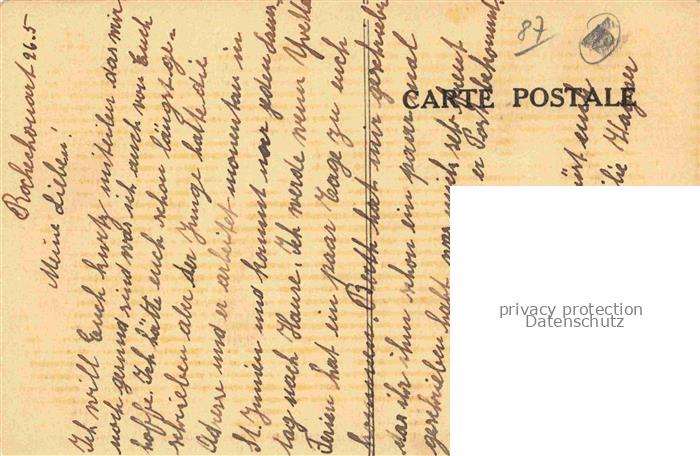 87
CARTE POSTALE
Rochechouart 26.5
Meine Lieben!
Ich will Euch kurtz mitteilen das mir
noch gesund sind was ich auch von Euch
hoffe. Ich hätte euch schon längst ge-
schrieben aber der Junge hatte die
Adresse und er arbeitet momentan in
St. Junien und kommt nur jeden Sams
tag nach Hause. Ich werde wenn Yvette
Ferien hat ein paar Tage zu euch
kommen. Berth hat mir geschrieben
das ihr ihm schon ein paar mal
geschrieben habt was mich sehr freut
er Post bekommt
üst euch
lie Hager
privacy protection
Datenschutz